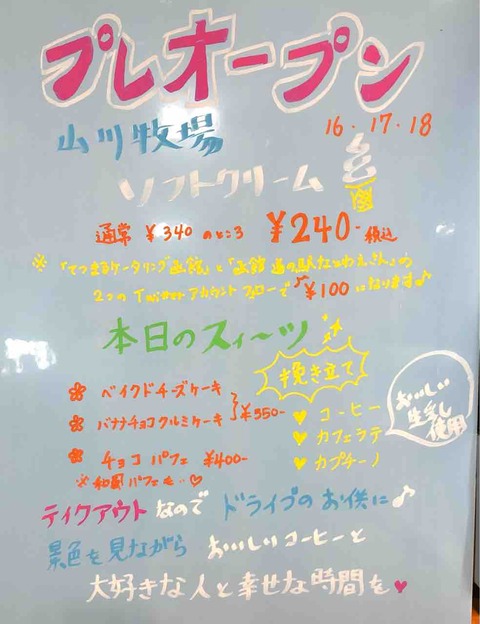 プレオープン
山川牧場 16・17・18
ソフトクリーム
通常 ¥340 のところ ¥240- 税込
※「てつまるケータリング函館」と「函館 道の駅なとわえさん」の
2つの Twitter アカウントフォローで ¥100 になります♪
本日のスィーツ
挽き立て
ベイクドチーズケーキ
バナナチョコクルミケーキ } ¥350-
チョコ パフェ ¥400-
※和風パフェも‥♡
♥ コーヒー
♥ カフェラテ
♥ カプチーノ
おいしい
生乳し
使用
ティクアウトなので ドライブのお供に♪
景色を見ながら おいしいコーヒーと
大好きな人と幸せな時間を♥